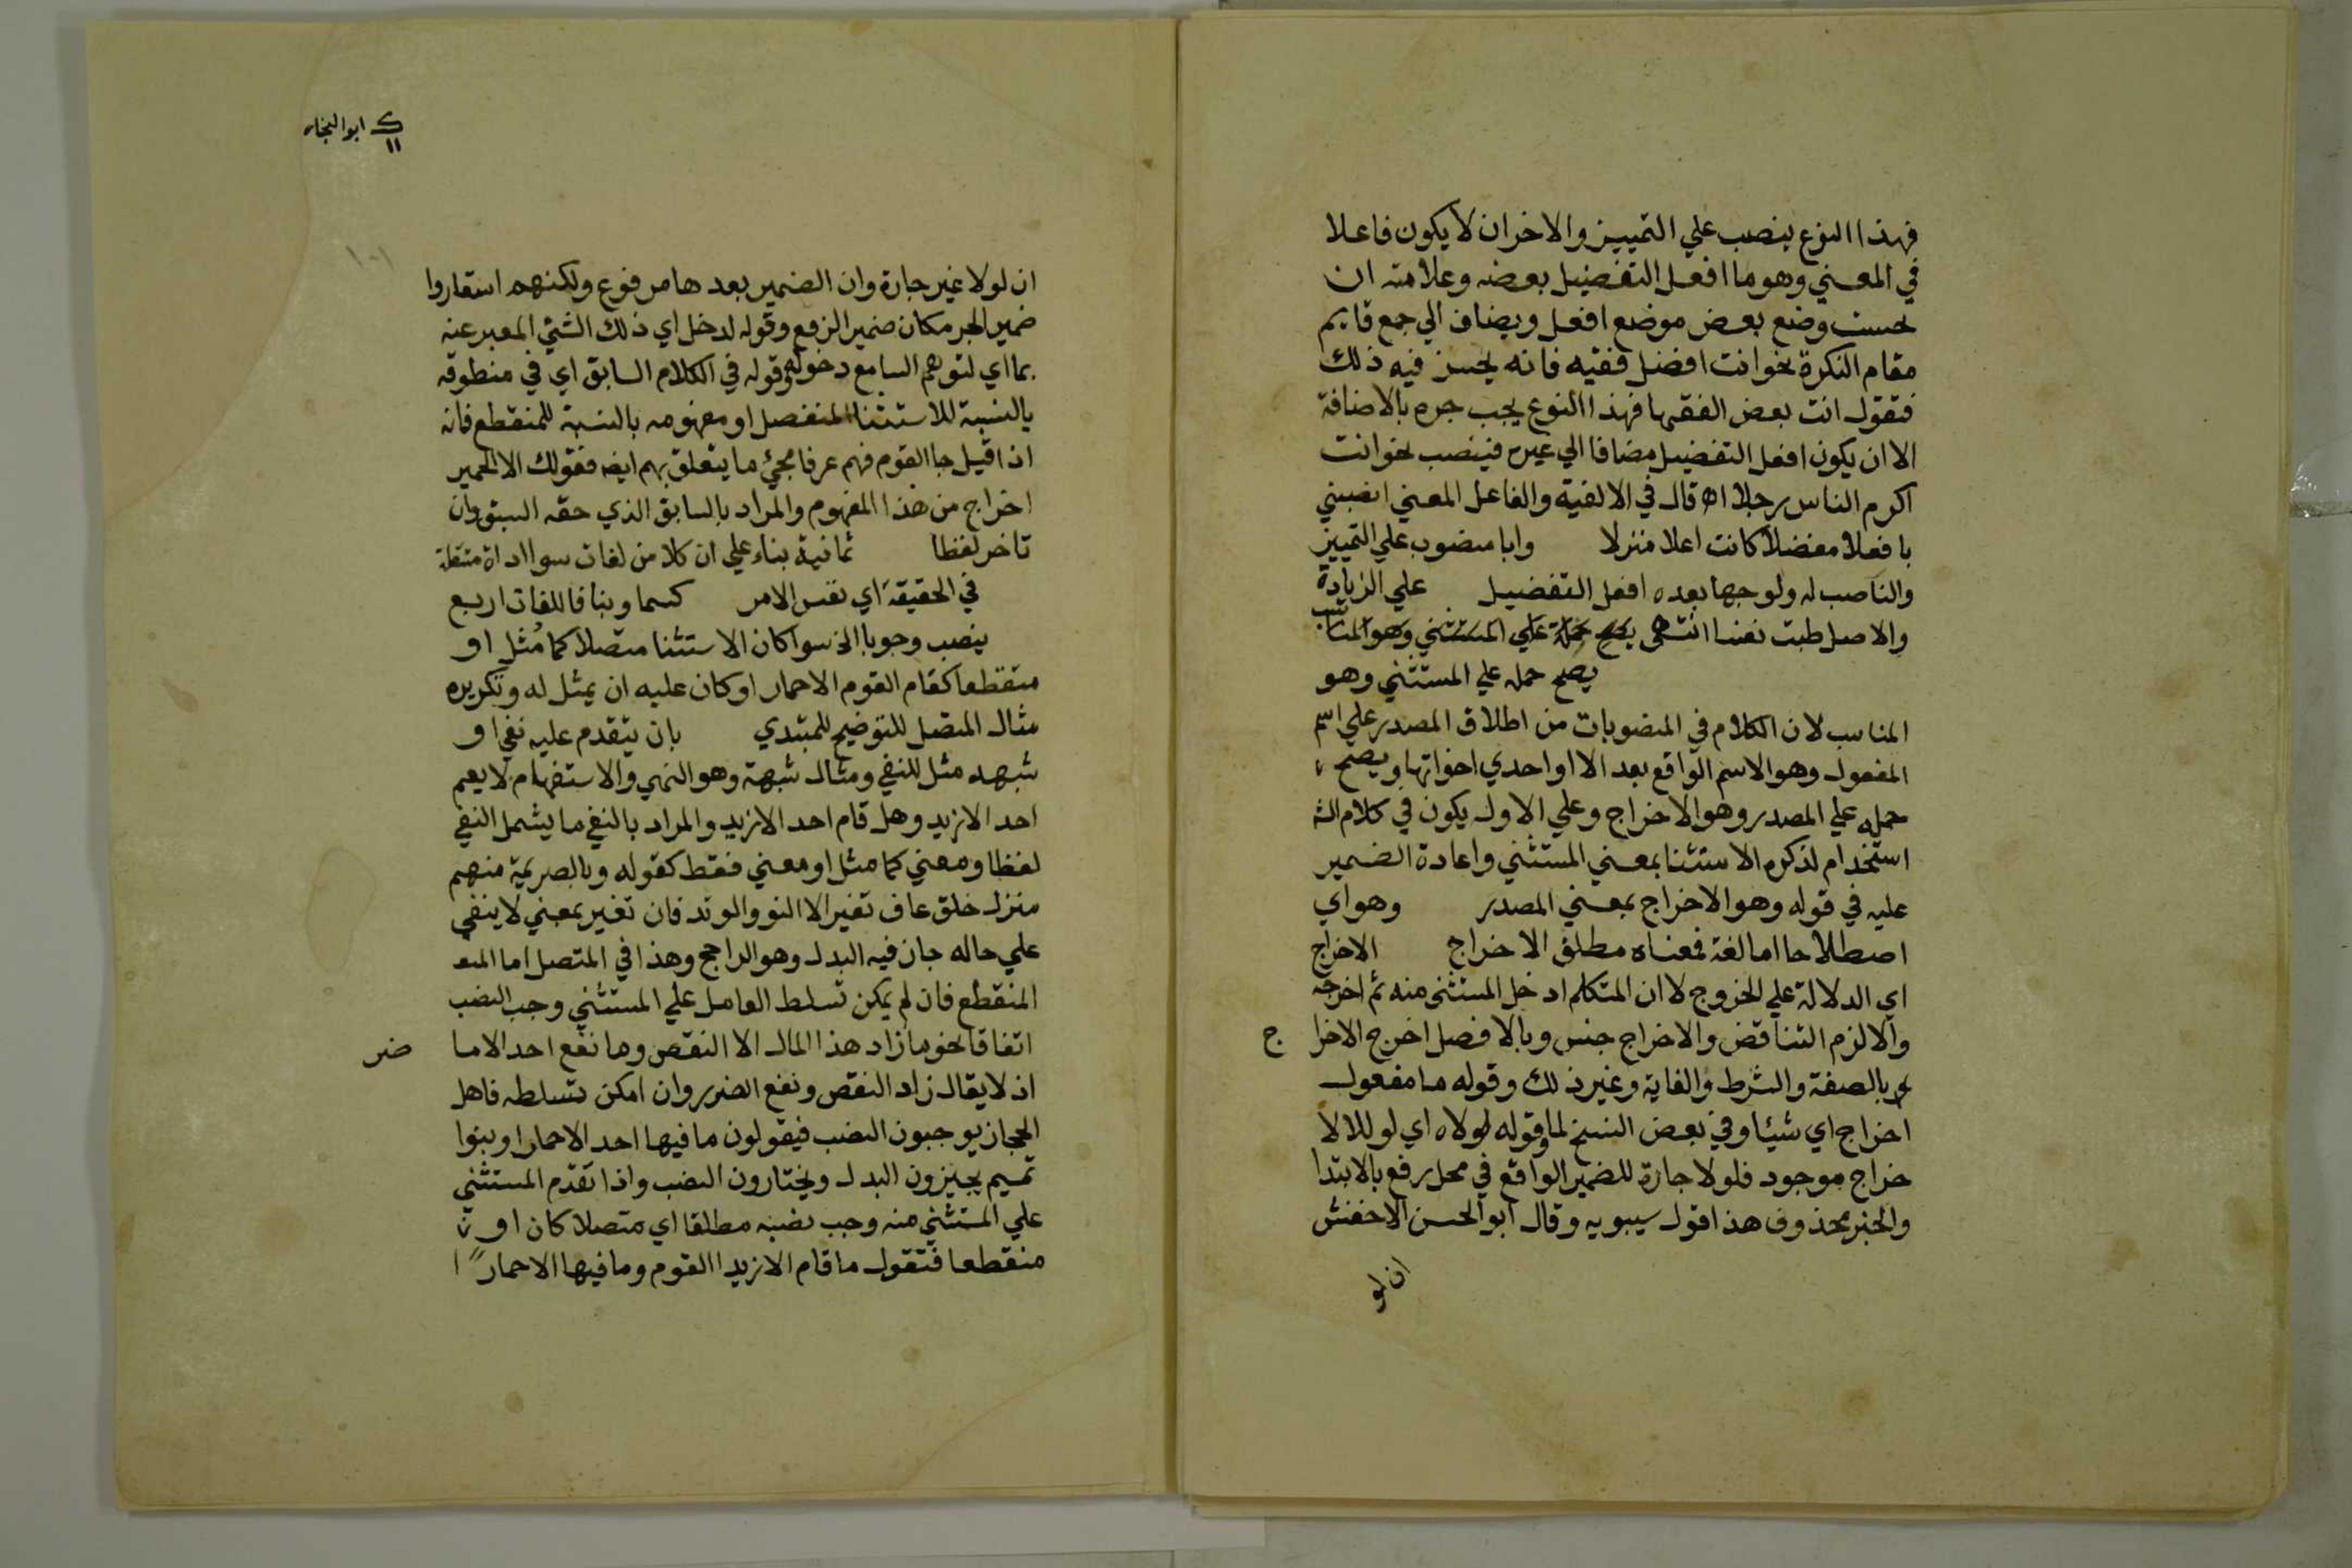 فهذا النوع ينصب علي التمييز والاخر ان لا يكون فاعلا
في المعني وهو ما افعل التفضيل بعضه وعلامته ان
يحسن وضع بعض موضع افعل ويضاف الي جمع قايم
مقام النكرة نحو انت افضل فقيه فانه يحسن فيه ذلك
فتقول انت بعض الفقها فهذا النوع يجب جره بالاضافة
الا ان يكون افعل التفضيل مضافا الي غيره فينصب نحو انت
اكرم الناس رجلا اه قال في الالفية والفاعل المعني انصبني
بافعلا مفضلا كانت اعلا منزلا وابا منصوب علي التمييز
والناصب له ولوجها بعده افعل التفضيل علي الزيادة
والاصل طبت نفسا انتهى يصح حمله علي المستثني وهو المناسب
يصح حمله علي المستثني وهو
المناسب لان الكلام في المنصوبات من اطلاق المصدر علي اسم
المفعول وهو الاسم الواقع بعد الا او احدي اخواتها ويصح
حمله علي المصدر وهو الاخراج وعلي الاول يكون في كلام الش
استخدام لذكره الاستثنا بمعني المستثني واعادة الضمير
عليه في قوله وهو الاخراج بمعني المصدر وهو اي
اصطلاحا اما لغة فمعناه مطلق الاخراج الاخراج
اي الدلالة علي الخروج لا ان المتكلم ادخل المستثنى منه ثم اخرجه
والا لزم التناقض والاخراج جنس وبالا فصل اخرج الاخرا ج
بالصفة والشرط والغاية وغير ذلك وقوله ما مفعول
اخراج اي شيئا وفي بعض النسخ لما وقوله لولاه اي لولا الا
خراج موجود فلولا جارة للضمير الواقع في محل رفع بالابتدا
والخبر محذوف هذا قول سيبويه وقال ابو الحسن الاخفش
ان لو
ك ابو النجاه
١١
١٠١
ان لولا غير جارة وان الضمير بعدها مرفوع ولكنهم استعاروا
ضمير الجر مكان ضمير الرفع وقوله لدخل اي ذلك الشئي المعبر عنه
بما اي لتوهم السامع دخوله وقوله في الكلام السابق اي في منطوقه
بالنسبة للاستثنا المنفصل او مفهومه بالنسبة للمنقطع فانه
اذا قيل جا القوم فهم عرفا مجيئ ما يتعلق بهم ايضه فقولك الا الحمير
اخراج من هذا المفهوم والمراد بالسابق الذي حقه السبق وان
تاخر لفظا ثمانية بناء علي ان كلا من لغات سوا اداة مستقلة
في الحقيقة اي نفس الامر كسما وبنا فاللغات اربع
ينصب وجوبا الخ سوا كان الاستثنا متصلا كما مثل او
منقطعا كقام القوم الا حمار او كان عليه ان يمثل له وتكريره
مثال المتصل للتوضيح للمبتدي بان يتقدم عليه نفي او
شبهه مثل للنفي ومثال شبهة وهو النهي والاستفهام لا يقم
احد الا زيد وهل قام احد الا زيد والمراد بالنفي ما يشمل النفي
لفظا ومعني كما مثل او معني فقط كقوله وبالصريمة منهم
منزل خلق عاف تغير الا النو والوتد فان تغير بمعني لا ينفي
علي حاله جاز فيه البدل وهو الراجح وهذا في المتصل اما المنـ
المنقطع فان لم يمكن تسلط العامل علي المستثني وجب النصب
اتفاقا نحو ما زاد هذا المال الا النقص وما نفع احد الا ما ضر
اذ لا يقال زاد النقص ونفع الضرر وان امكن تسلطه فاهل
الحجاز يوجبون النصب فيقولون ما فيها احد الا حمارا وبنوا
تميم يجيزون البدل ويختارون النصب واذا تقدم المستثني
علي المستثني منه وجب نصبه مطلقا اي متصلا كان او
منقطعا فتقول ما قام الا زيدا القوم وما فيها الا حمارا